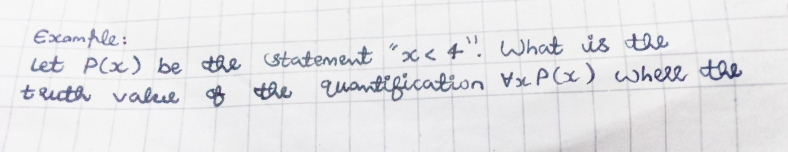 Example:
Let P(x) be the statement "x < 4". What is the
truth value of the quantification ∀x P(x) where the